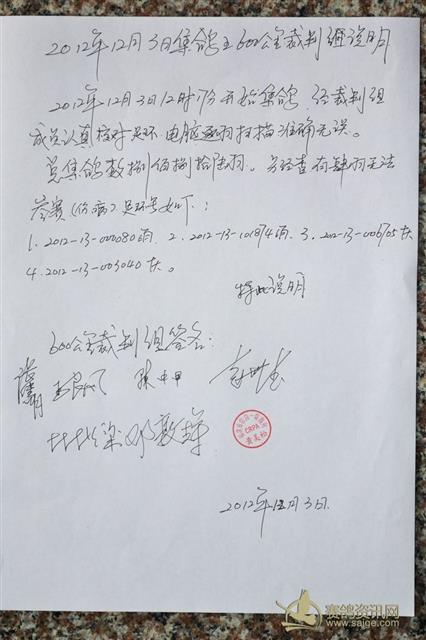 2012年12月3日集鸽王600公里裁判组说明
2012年12月3日12时7分开始集鸽，经裁判组
成员认真核对足环、电脑逐羽扫描准确无误。
总集鸽数捌佰捌拾陆羽。另经查有肆羽无法
参赛（伤病）足环号如下：
1. 2012-13-000080雨. 2. 2012-13-101874雨. 3. 2012-13-006705灰
4. 2012-13-003040灰。
特此说明
600公里裁判组签名：
CRPA
2012年12月3日.
赛鸽资讯网
www.saige.com